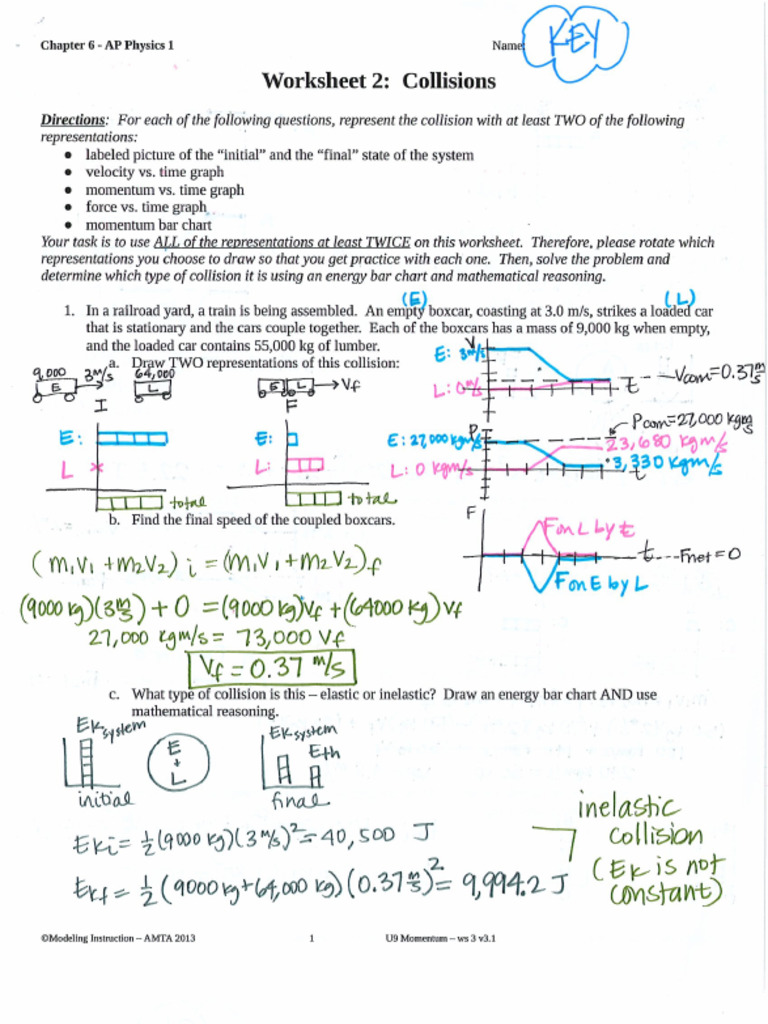 Chapter 6 - AP Physics 1
Name:
KEY
Worksheet 2: Collisions
Directions: For each of the following questions, represent the collision with at least TWO of the following
representations:
● labeled picture of the "initial" and the "final" state of the system
● velocity vs. time graph
● momentum vs. time graph
● force vs. time graph
● momentum bar chart
Your task is to use ALL of the representations at least TWICE on this worksheet. Therefore, please rotate which
representations you choose to draw so that you get practice with each one. Then, solve the problem and
determine which type of collision it is using an energy bar chart and mathematical reasoning.
(E) (L)
1. In a railroad yard, a train is being assembled. An empty boxcar, coasting at 3.0 m/s, strikes a loaded car
that is stationary and the cars couple together. Each of the boxcars has a mass of 9,000 kg when empty,
and the loaded car contains 55,000 kg of lumber.
a. Draw TWO representations of this collision:
9,000 3m/s 64,000
E L E L Vf
I F
V
E: 3m/s
L: 0m/s
t
Vcom=0.37m/s
E:
L
total
E:
L:
total
P
Pcom=27,000 kgm/s
E: 27,000 kgm/s
23,680 kgm/s
3,330 kgm/s
L: 0 kgm/s
t
b. Find the final speed of the coupled boxcars.
F
F on L by E
t
Fnet=0
F on E by L
(m1v1+m2v2)i=(m1v1+m2v2)f
(9000 kg)(3 m/s)+0=(9000 kg)vf+(64000 kg)vf
27,000 kgm/s= 73,000 Vf
Vf = 0.37 m/s
c. What type of collision is this – elastic or inelastic? Draw an energy bar chart AND use
mathematical reasoning.
Ek system
E
+
L
initial
Ek system
Eth
final
Eki= 1/2(9000 kg)(3 m/s)²=40,500 J
Ekf= 1/2(9000kg+64,000 kg)(0.37 m/s)²= 9,994.2 J
inelastic
collision
(Ek is not
constant)
©Modeling Instruction – AMTA 2013
1
U9 Momentum – ws 3 v3.1